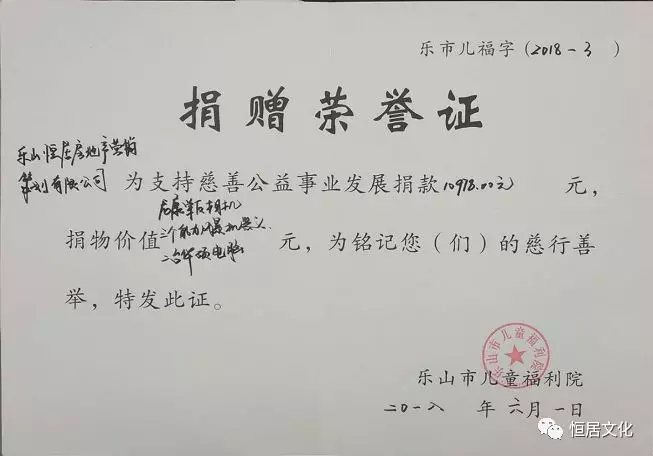 乐市儿福字(2018-3 )
捐赠荣誉证
乐山恒居房地产营销
策划有限公司 为支持慈善公益事业发展捐款10978.00元 元,
捐物价值 元,为铭记您(们)的慈行善
二台华硕电脑
举,特发此证。
乐山市儿童福利院
乐山市儿童福利院
二〇一八 年 六月 一日
恒居文化